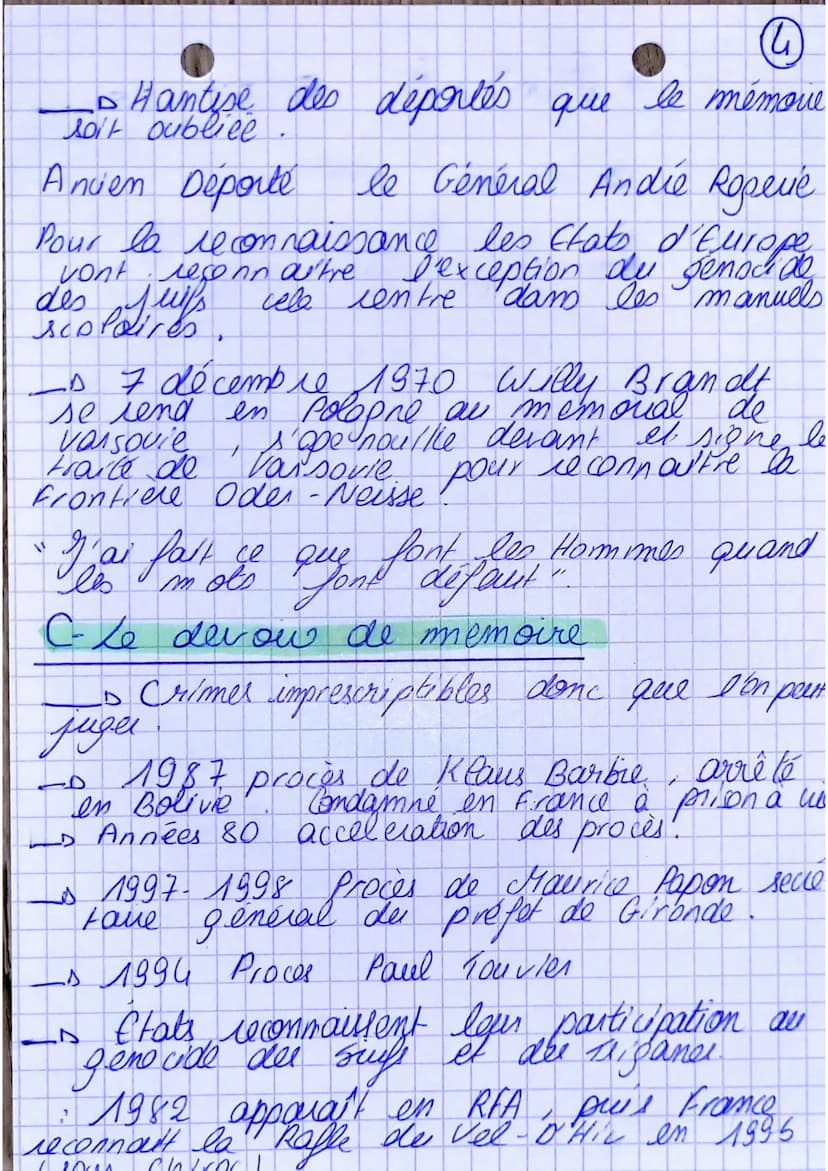 4
→ Hantise des déportés que le mémoire
soit oubliée.
Ancien Déporté le Général André Rogerie
Pour la reconnaissance les Etats d'Europe
vont reconnaitre l'exception du génocide
des juifs cela rentre dans les manuels
scolaires.
→ 7 décembre 1970 Willy Brandt
se rend en Pologne au mémorial de
Varsovie, s'agenouille devant et signe le
traité de Varsovie pour reconnaitre la
Frontière Oder-Neisse.
"J'ai fait ce que font les Hommes quand
les mots font défaut".
C- Le devoir de mémoire
→ Crimes imprescriptibles donc que l'on peut
juger.
→ 1987 procès de Klaus Barbie, arrêté
en Bolivie. Condamné en France à prison à
→ Années 80 accéleration des procès.
→ 1997-1998 Procès de Maurice Papon secré
taire général du préfet de Gironde.
→ 1994 Proces Paul Touvier
→ États reconnaissent leur participation au
génocide des Juifs et des Tziganes.
: 1982 apparaît en RFA, puis France
reconnaît la Rafle du Vel-D'Hiv en 1995